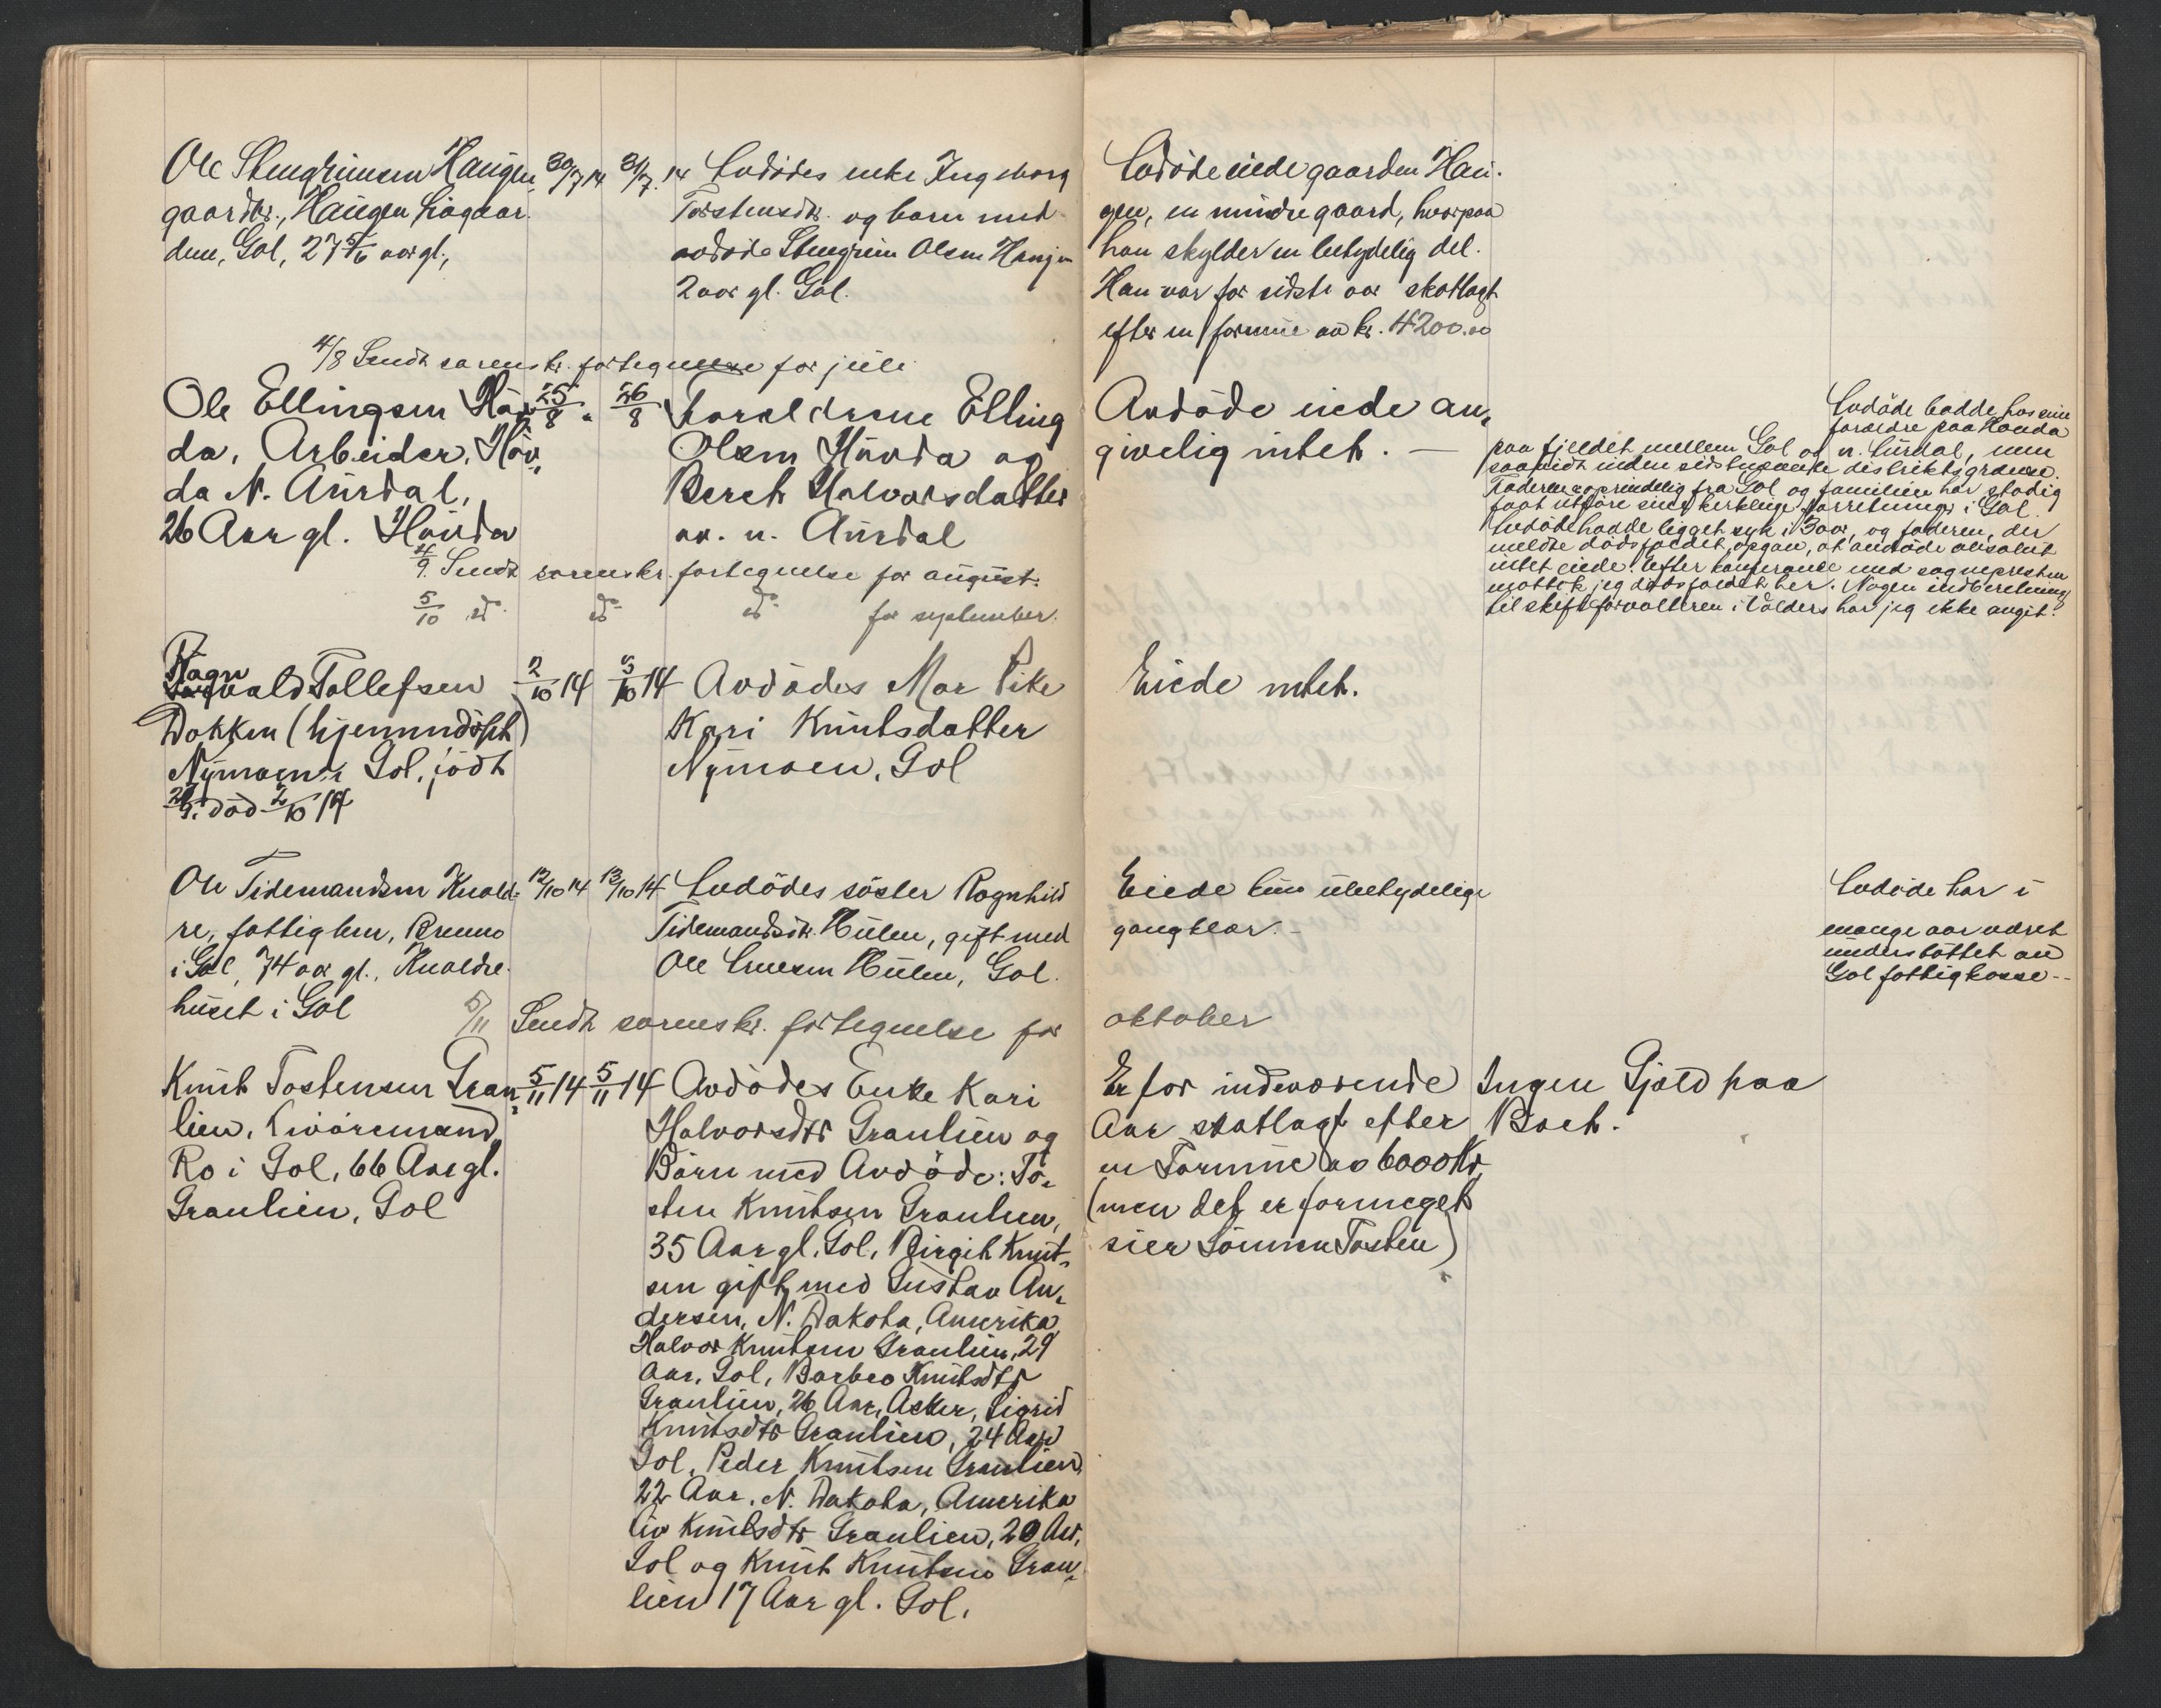 Ole Stengrimsen Haugen
gaardbr., Haugen Liagaar-
dene, Gol, 27 5/6 aar gl.,
30/7 14
31/7. 14
Avdødes enke Ingeborg
Torstensdtr. og barn med
avdøde Stengrim Olsen Haugen
2 aar gl. Gol.
Avdøde eiede gaarden Hau-
gen, en mindre gaard, hvorpaa
han skylder en betydelig del.
Han var for sidste aar skatlagt
efter en formue av kr. 4200.00
4/8 Sendt sorenskr. fortegnelse for juli
Ole Ellingsen Höv-
da, Arbeider, Höv-
da N. Aurdal,
26 Aar gl. Hövda
25/8 "
26/8
Forældrene Elling
Olsen Hövda og
Beret Halvorsdatter
av. n. Aurdal
Avdöde eiede an-
givelig intet. —
Avdøde bodde hos sine
forældre paa Hovda
paa fjeldet mellem Gol og n. Aurdal, men
saavidt inden sidstnævnte distriktsgrænse.
Faderen er oprindelig fra Gol og familien har stadig
faat utføre sine kirkelige forretninger i Gol.
Avdøde hadde ligget syk i 3 aar, og faderen, der
meldte dødsfaldet, opgav, at avdøde absolut
intet eiede. Efter konferanse med sognepresten
mottok jeg dødsfaldet her. Nogen indberetning
til skifteforvalteren i Valders har jeg ikke avgit.
4/9. Sendt sorenskr. fortegnelse for august.
5/10 do do do for september.
Ragn
vald Tollefsen
Dokken (hjemmedöpt)
Nymoen i Gol, födt
29/9. död 2/10 14
2/10 14
3/10 14
Avdödes Mor Pike
Kari Knutsdatter
Nymoen, Gol
Eiede intet.
Ole Tidemandsen Knold-
re, fattiglem, Brenno
i Gol, 74 aar gl., Knoldre-
huset i Gol
12/10 14
13/10 14
Avdødes søster Ragnhild
Tidemandsdtr. Hulen, gift med
Ole Hulen, Gol.
Eiede kun ubetydelige
gangklær. -
Avdøde har i
mange aar været
understøttet av
Gol fattigkasse -
5/11 Sendt sorenskr. fortegnelse for oktober
Knut Tostensen Gran-
lien, Livöremand
Ro i Gol, 66 Aar gl.
Granlien, Gol
5/11 14
5/11 14
Avdödes Enke Kari
Halvorsdtr Granlien og
Börn med Avdöde: To-
sten Knutsen Granlien,
35 Aar gl. Gol, Birgit Knut-
sen gift med Gustav An-
dersen, N. Dakota, Amerika
Halvor Knutsen Granlien, 29
Aar, Gol, Barbro Knutsdtr
Granlien, 26 Aar, Asker, Sigrid
Knutsdtr Granlien, 24 Aar
Gol, Peder Knutsen Granlien
22 Aar, N. Dakota, Amerika
Liv Knutsdtr Granlien, 20 Aar,
Gol og Knut Knutsen Gran-
lien 17 Aar gl. Gol.
Er for indeværende
Aar skatlagt efter
en Formue av 6000 Kr,
(men det er formeget
sier Sönnen Tosten)
Ingen Gjæld paa
Boet.